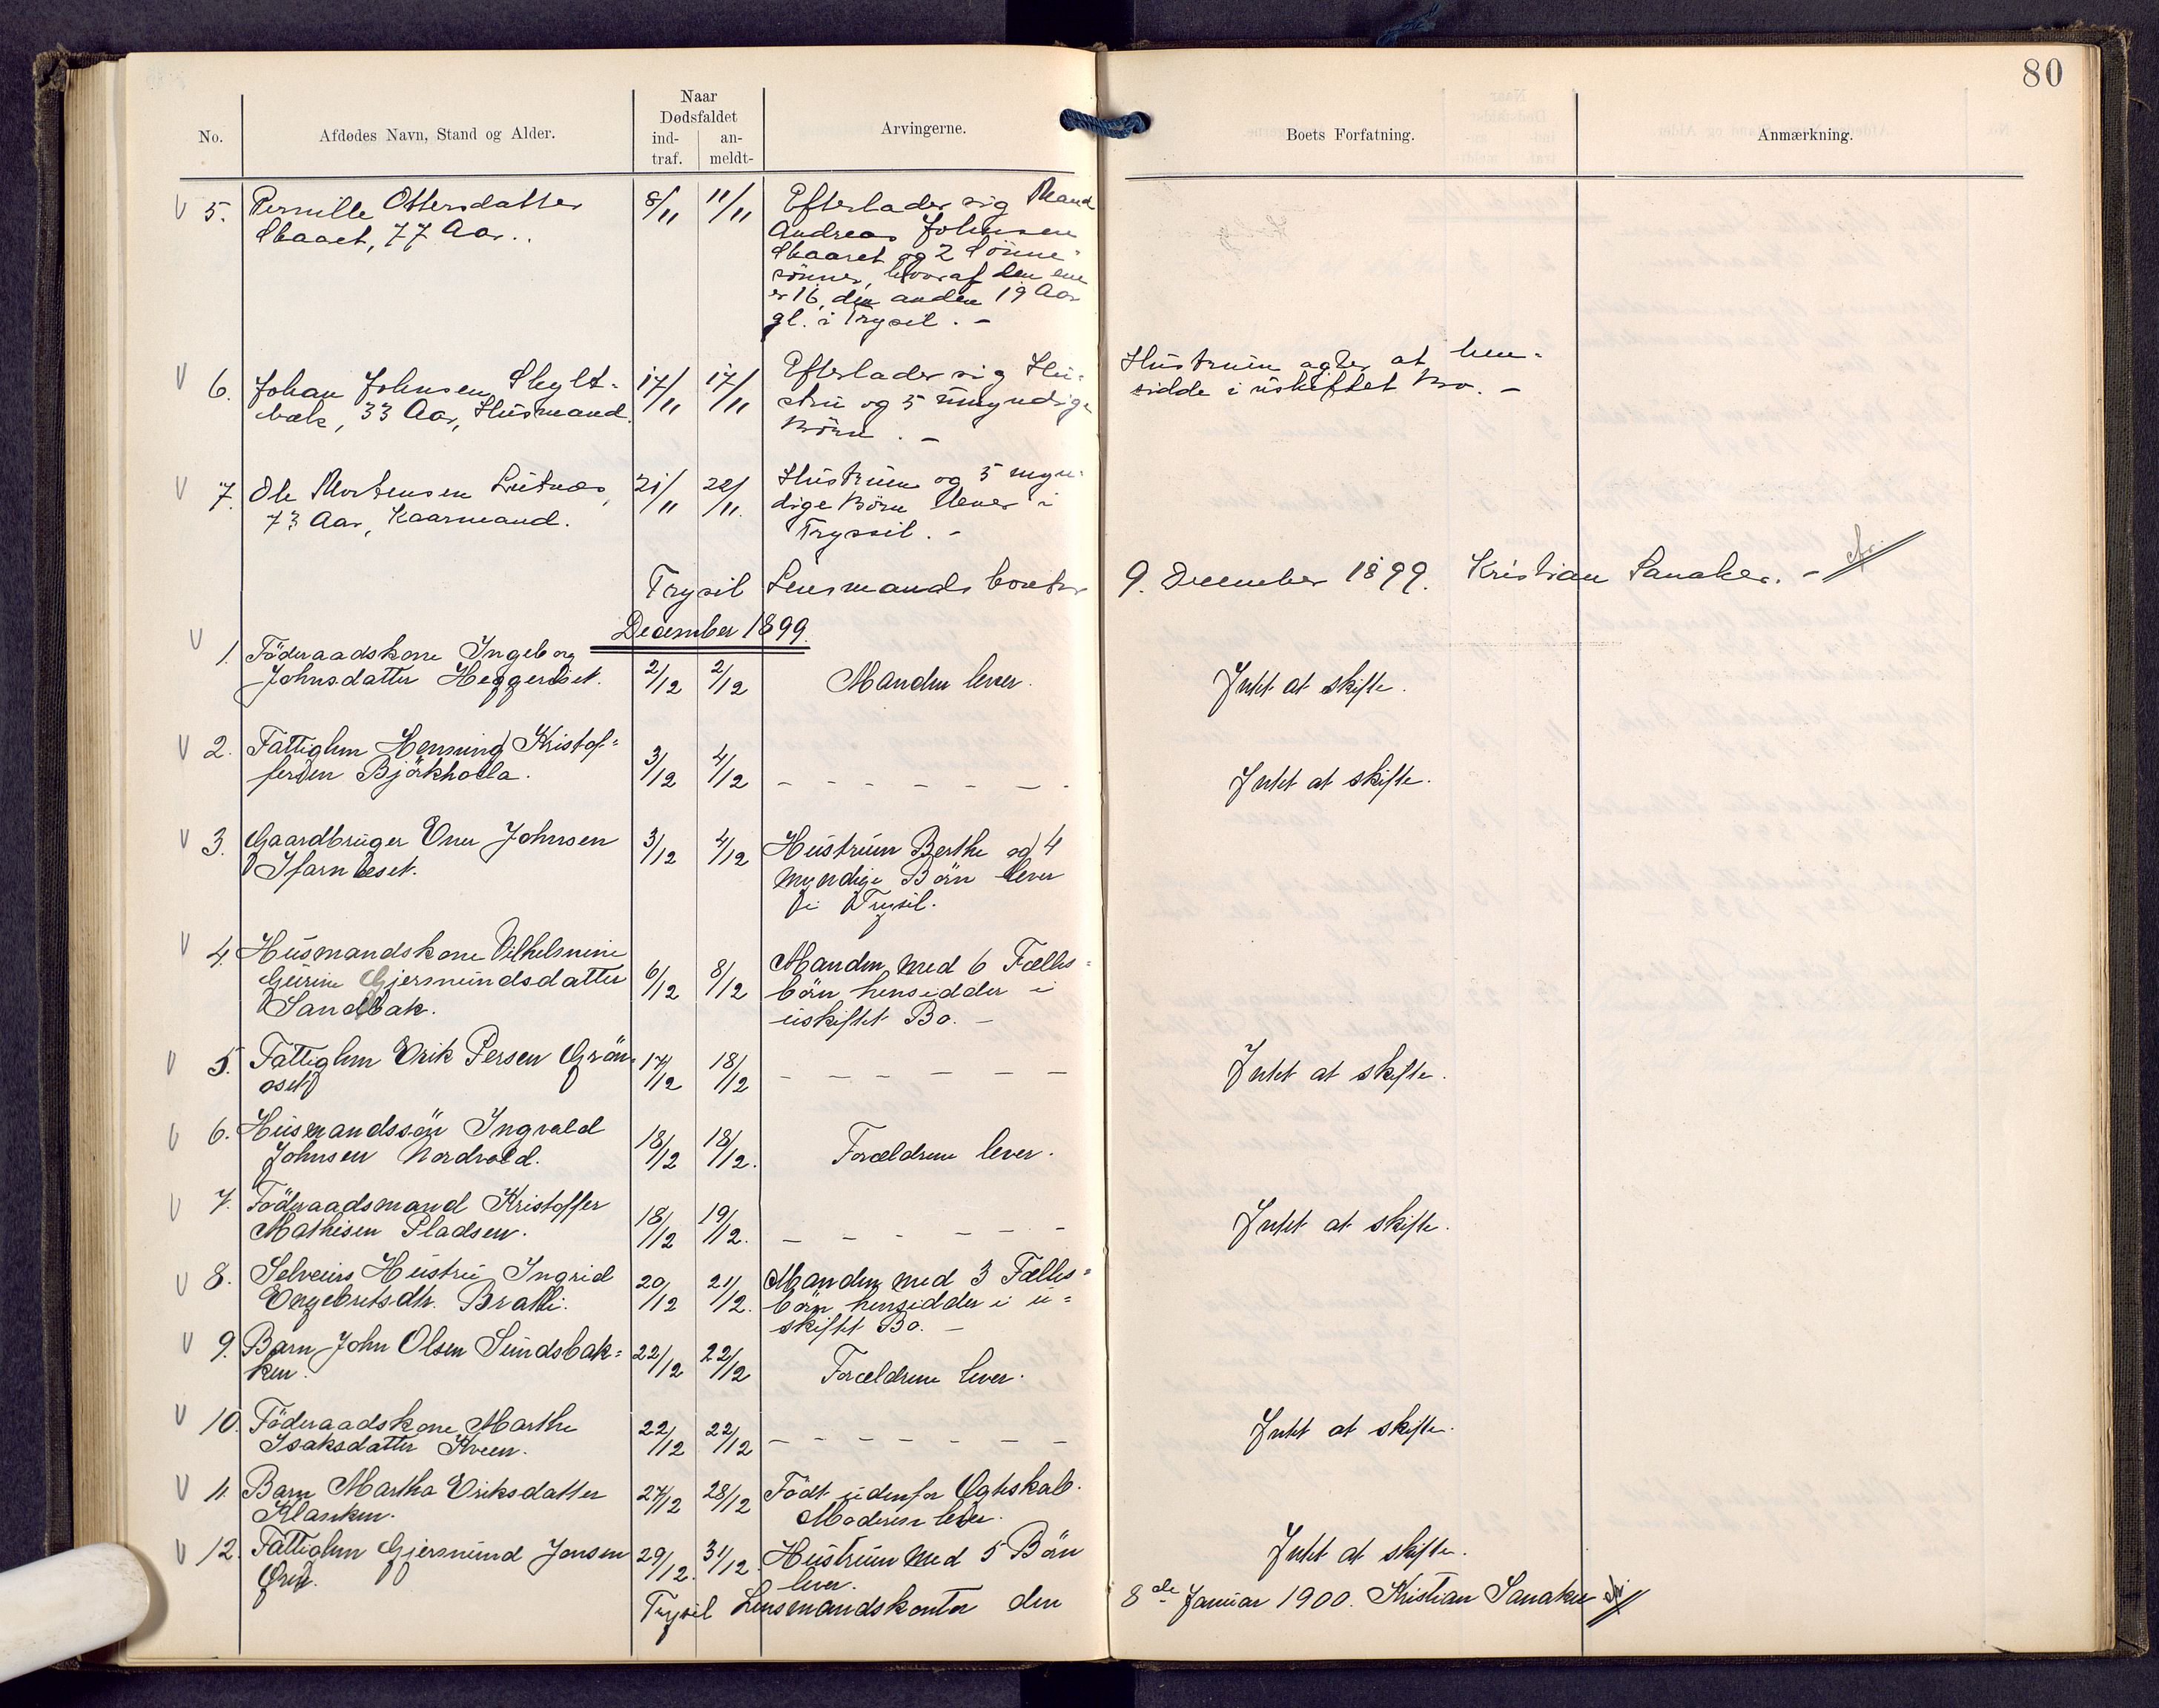 80
No.
Afdødes Navn, Stand og Alder.
Naar
Dødsfaldet
ind-
traf.
an-
meldt-
Arvingerne.
Boets Forfatning.
Anmærkning.
5. Pernille Ottersdatter 8/11 11/11 Efterlader sig Mand
Skaaret, 77 Aar. Andreas Johnsen
Skaaret og 2 Sönne-
sönner, hvoraf den ene
er 16, den anden 19 Aar
gl. i Trysil. -
6. Johan Johnsen Skylt- 17/11 17/11 Efterlader sig Hu- Hustruen agter at hen-
bæk, 33 Aar, Husmand. stru og 5 umyndige sidde i uskiftet Bo. -
Börn. -
7. Ole Mortensen Lutnæs, 21/11 22/11. Hustruen og 5 myn-
73 Aar, Kaarmand. dige Börn lever i
Trysil. -
Trysil Lensmandskontor 9. December 1899. Kristian Sanaker. -
December 1899.
1. Föderaadskone Ingeborg
Johnsdatter Heggeriset. 2/12 2/12 Manden lever. Intet at skifte.
2. Fattiglem Henning Kristof-
fersen Björkholla. 3/12 4/12 - - - - - - - Intet at skifte.
3. Gaardbruger Enn Johnsen 3/12 4/12 Hustruen Berthe og 4
Ifarneset. myndige Börn lever
i Trysil.
4. Husmandskone Vilhelmine Manden med 6 Fælles-
Gurine Gjermundsdatter 6/12 8/12 börn hensidder i
Sandbak. uskiftet Bo. -
5. Fattiglem Erik Persen Grön- 17/12 18/12 - - - - - - Intet at skifte.
oset
6. Husmandssön Ingvald
Johnsen Nordvold. 18/12 18/12. Forældrene lever.
7. Föderaadsmand Kristoffer
Mathisen Pladsen. 18/12 19/12. - - - - - - Intet at skifte.
8. Selveiers Hustru Ingrid 20/12 21/12. Manden med 3 Fælles-
Engebretsdtr. Bratli. börn hensidder i u-
skiftet Bo. -
9. Barn John Olsen Sundsbak- 22/12 22/12
ken. Forældrene lever.
10. Föderaadskone Marthe 22/12 22/12 - - - - - - - Intet at skifte.
Isaksdatter Kveen.
11. Barn Martha Eriksdatter 27/12 28/12 Födt udenfor Ægteskab.
Klanken. Moderen lever.
12. Fattiglem Gjermund Jonsen 29/12. 31/12. Hustruen med 5 Börn Intet at skifte.
lever.
Trysil Lensmandskontor den 8de Januar 1900. Kristian Sanaker